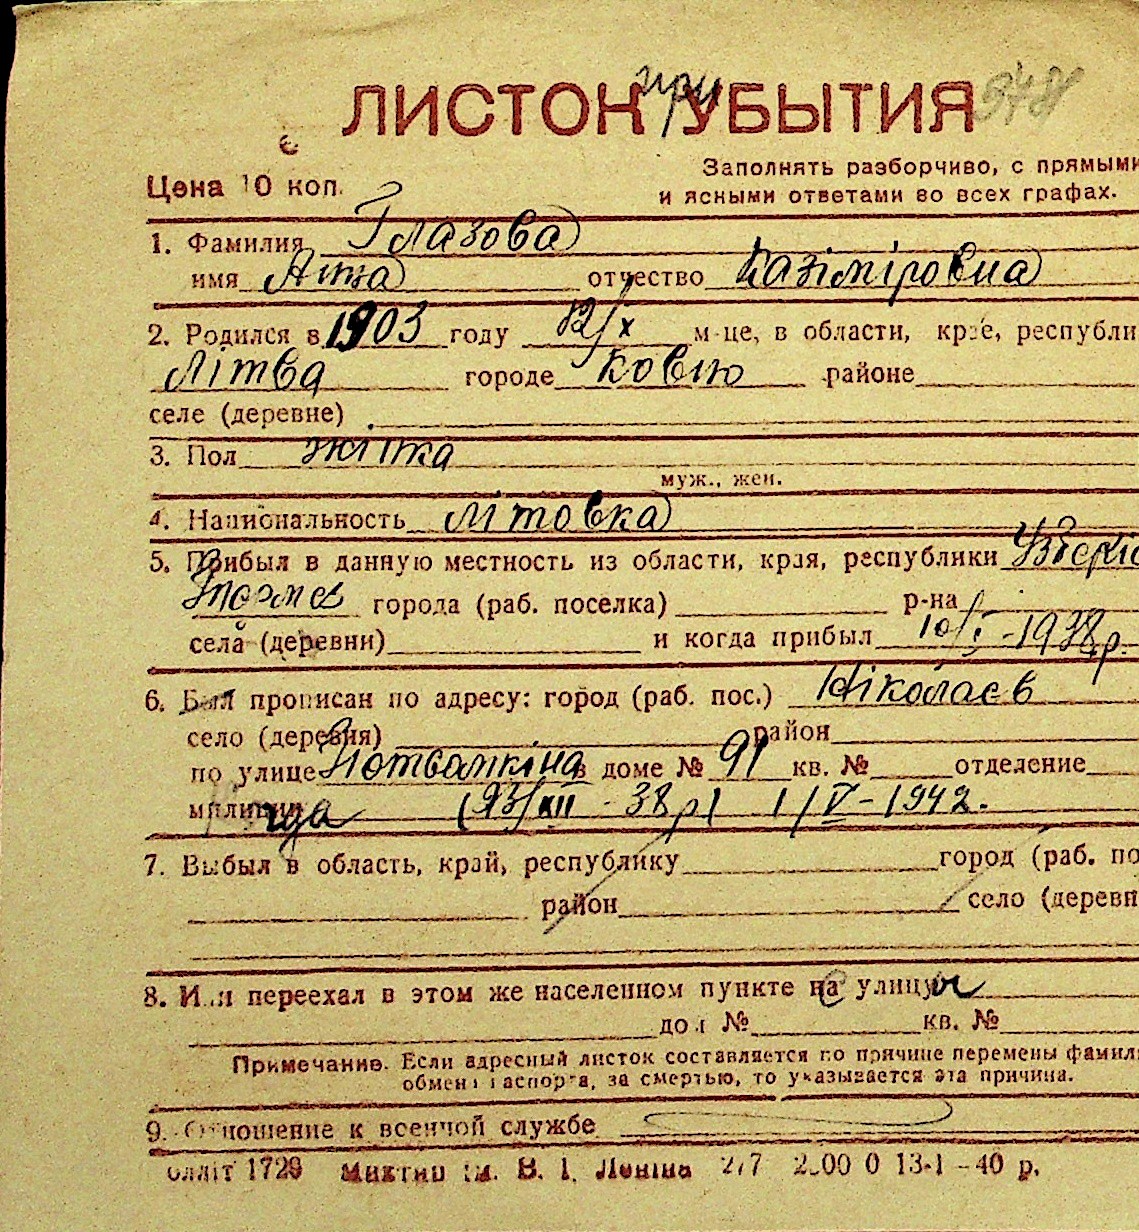 ЛИСТОК при УБЫТИЯ
Цена 10 коп.
Заполнять разборчиво, с прямыми
и ясными ответами во всех графах.
1. Фамилия Глазова
имя Анна отчество Казіміровна
2. Родился в 1903 году 12/X м-це, в области, крае, республи
Літва городе Ковно районе
селе (деревне)
3. Пол жінка
муж., жен.
4. Национальность літовка
5. Прибыл в данную местность из области, края, республики
города (раб. поселка) р-на
села (деревни) и когда прибыл 10/I-1938р.
6. Был прописан по адресу: город (раб. пос.) Ніколаєв
село (деревня) район
по улице Потьомкіна в доме № 91 кв. № отделение
милиции (23/XII - 38 р) 1/V - 1942.
7. Выбыл в область, край, республику город (раб. по
район село (деревн
8. Или переехал в этом же населенном пункте на улицу
дом № кв. №
Примечание. Если адресный листок составляется по причине перемены фамили
обмена паспорта, за смертью, то указывается эта причина.
9. Отношение к военной службе
Оллит 1729 им. В. І. Леніна 13-I-40 р.